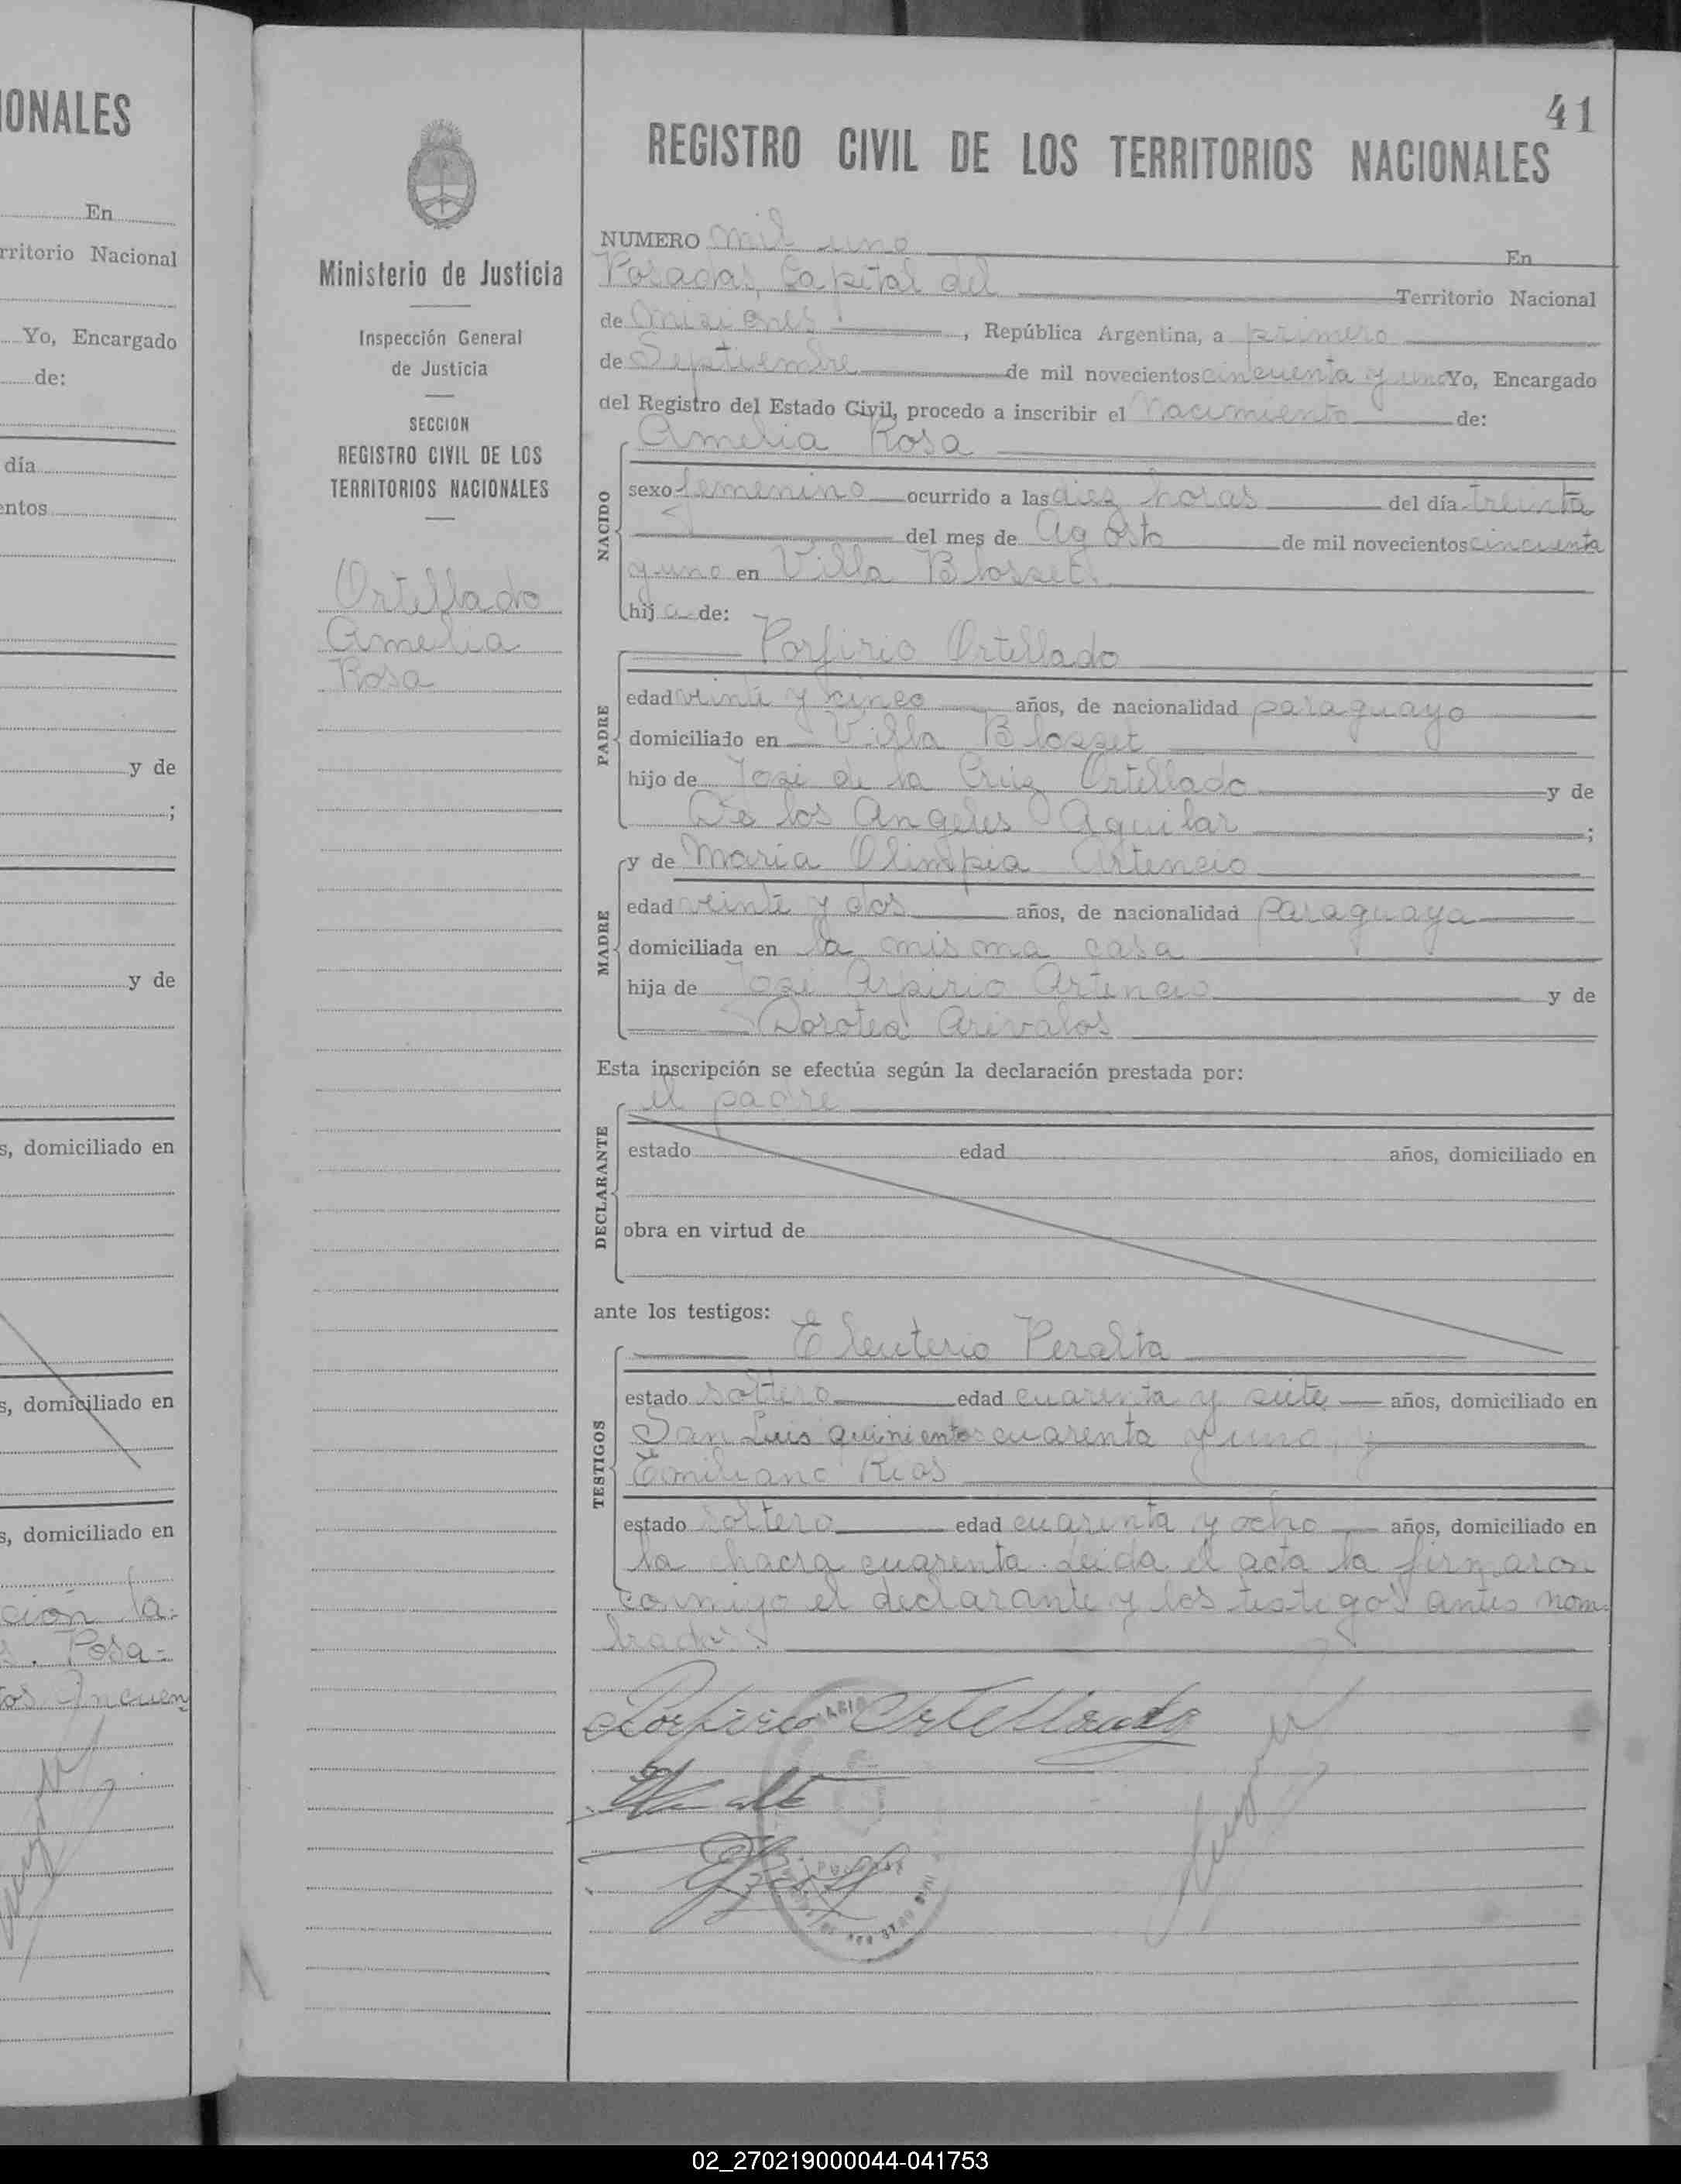 IONALES
En
rritorio Nacional
Yo, Encargado
de:
día
entos
y de
;
y de
s, domiciliado en
s, domiciliado en
s, domiciliado en
ción la
. Posa-
tos Cincuen
Ministerio de Justicia
Inspección General
de Justicia
SECCION
REGISTRO CIVIL DE LOS
TERRITORIOS NACIONALES
Ortellado
Amelia
Rosa
41
REGISTRO CIVIL DE LOS TERRITORIOS NACIONALES
NUMERO mil uno En
Posadas, Capital del Territorio Nacional
de Misiones, República Argentina, a primero
de Septiembre de mil novecientos cincuenta y uno Yo, Encargado
del Registro del Estado Civil, procedo a inscribir el Nacimiento de:
Amelia Rosa
NACIDO
sexo femenino ocurrido a las diez horas del día treinta
del mes de Agosto de mil novecientos cincuenta
y uno en Villa Blosset
hija de:
Porfirio Ortellado
PADRE
edad veinte y cinco años, de nacionalidad paraguayo
domiciliado en Villa Blosset
hijo de José de la Cruz Ortellado y de
De los Angeles Aguilar ;
y de Maria Olimpia Artencio
MADRE
edad veinte y dos años, de nacionalidad Paraguaya
domiciliada en la misma casa
hija de José Artencio y de
Dorotea Arevalos
Esta inscripción se efectúa según la declaración prestada por:
el padre
DECLARANTE
estado edad años, domiciliado en
obra en virtud de
ante los testigos:
Eleuterio Peralta
TESTIGOS
estado soltero edad cuarenta y siete años, domiciliado en
San Luis quinientos cuarenta y uno, y
Emiliano Rios
estado soltero edad cuarenta y ocho años, domiciliado en
la chacra cuarenta. Leida el acta la firmaron
conmigo el declarante y los testigos antes nom-
brados.
Porfirio Ortellado
02_270219000044-041753